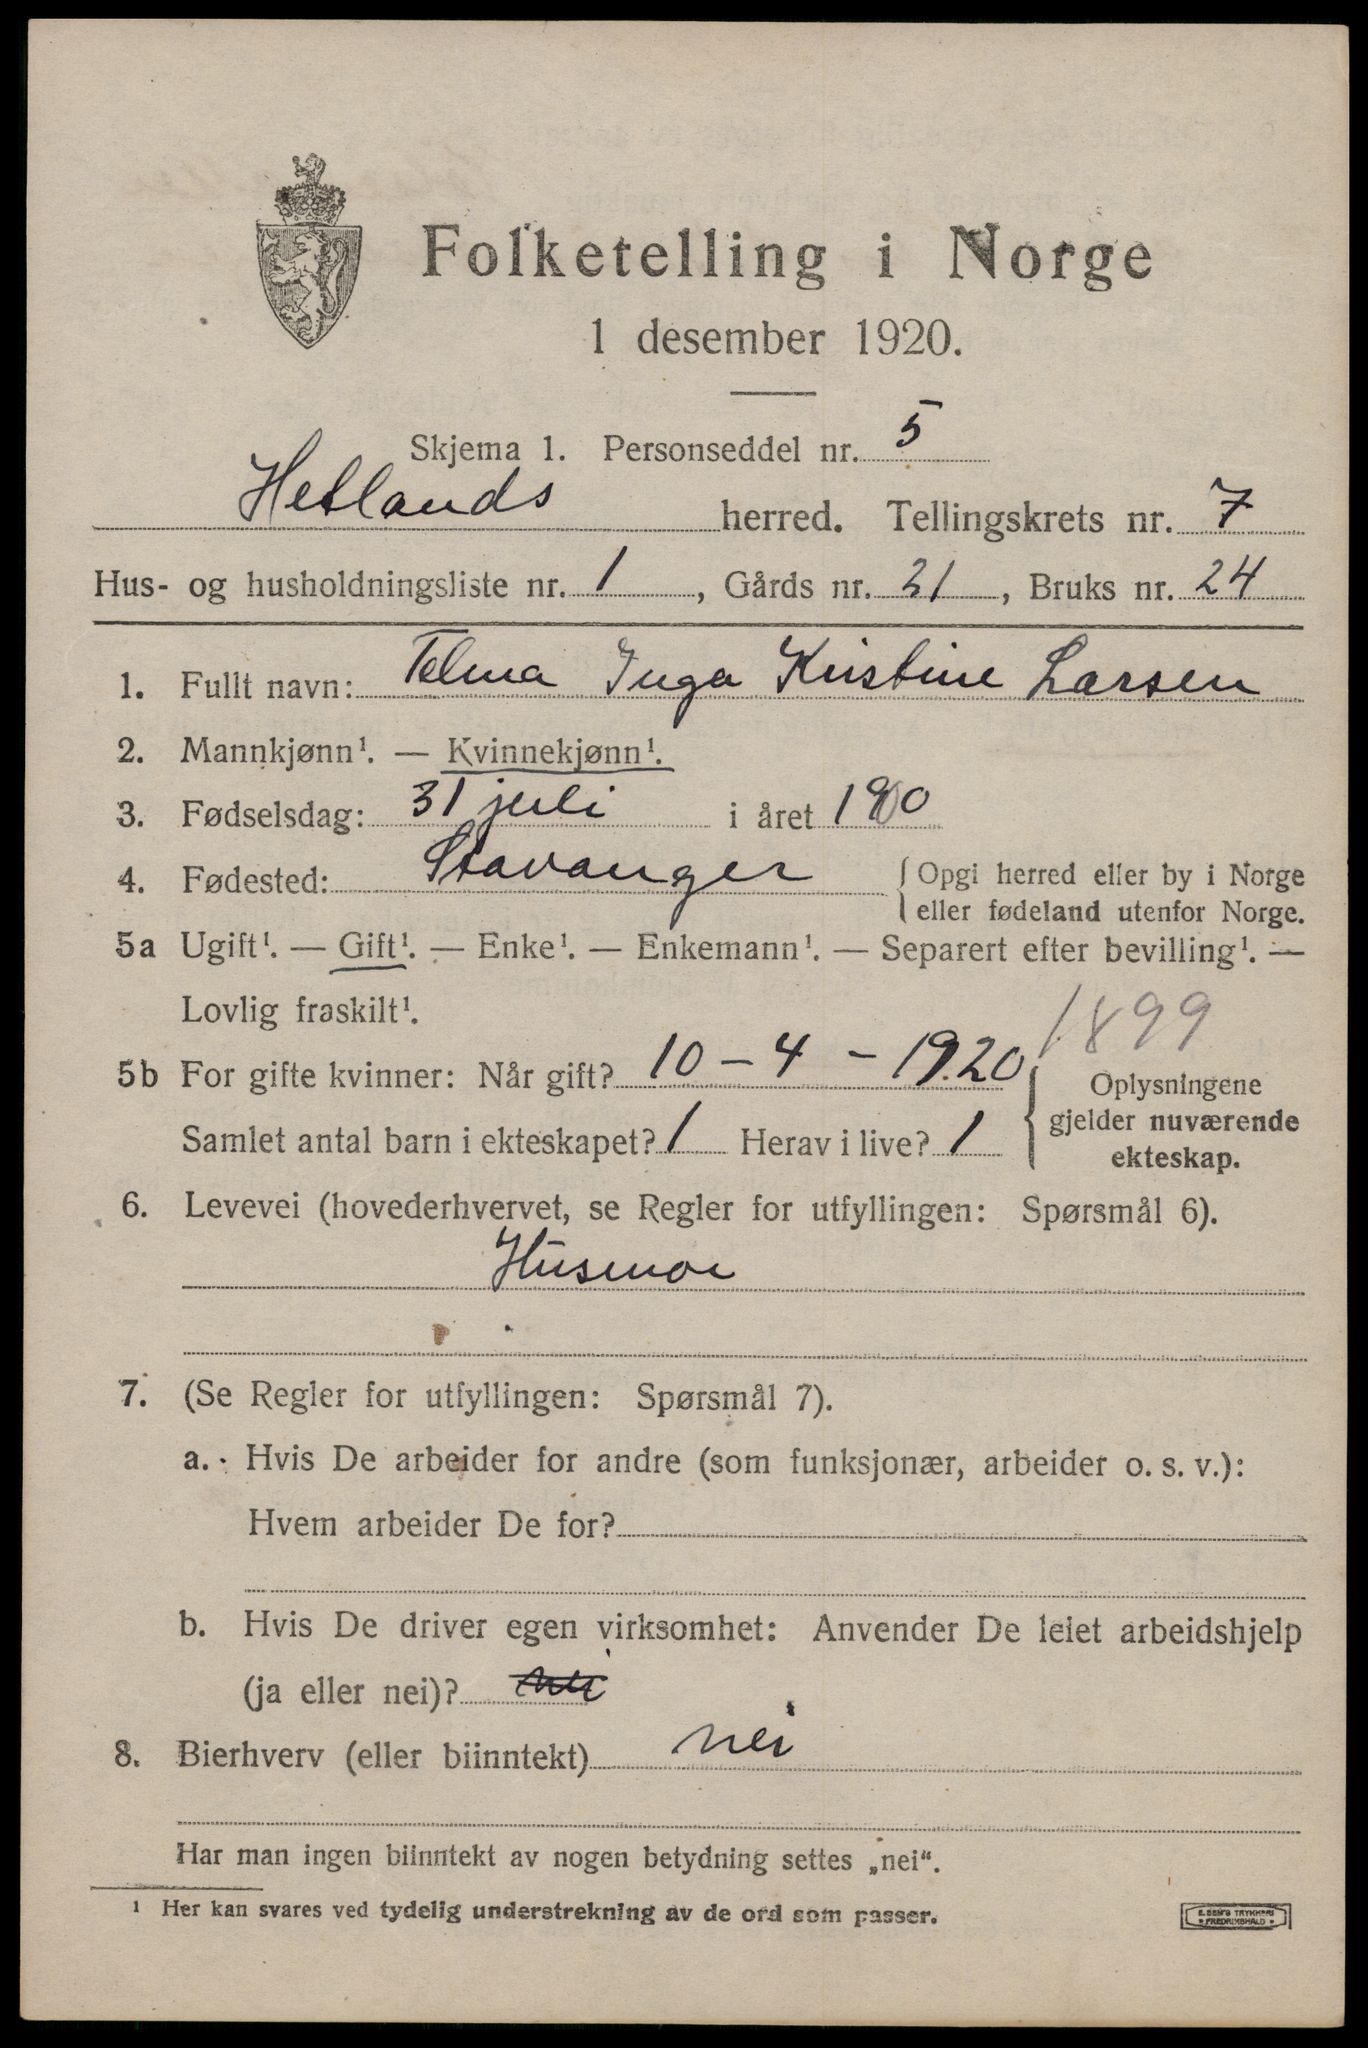 Folketelling i Norge
1 desember 1920.
Skjema 1. Personseddel nr. 5
Hetlands herred. Tellingskrets nr. 7
Hus- og husholdningsliste nr. 1, Gårds nr. 21, Bruks nr. 24
1. Fullt navn: Telma Inga Kristine Larsen
2. Mannkjønn¹. — Kvinnekjønn¹.
3. Fødselsdag: 31 juli i året
4. Fødested: Stavanger { Opgi herred eller by i Norge
eller fødeland utenfor Norge.
5a Ugift¹. — Gift¹. — Enke¹. — Enkemann¹. — Separert efter bevilling¹. —
Lovlig fraskilt¹.
1899
5b For gifte kvinner: Når gift? 10 – 4 – 1920 { Oplysningene
gjelder nuværende
Samlet antal barn i ekteskapet? 1 Herav i live? 1
ekteskap.
6. Levevei (hovederhvervet, se Regler for utfyllingen: Spørsmål 6).
Husmor
7. (Se Regler for utfyllingen: Spørsmål 7).
a. Hvis De arbeider for andre (som funksjonær, arbeider o. s. v.):
Hvem arbeider De for?
b. Hvis De driver egen virksomhet: Anvender De leiet arbeidshjelp
(ja eller nei)? nei
8. Bierhverv (eller biinntekt) nei
Har man ingen biinntekt av nogen betydning settes „nei“.
¹ Her kan svares ved tydelig understrekning av de ord som passer.
E. SEM'S TRYKKERI
FREDRIKSHALD